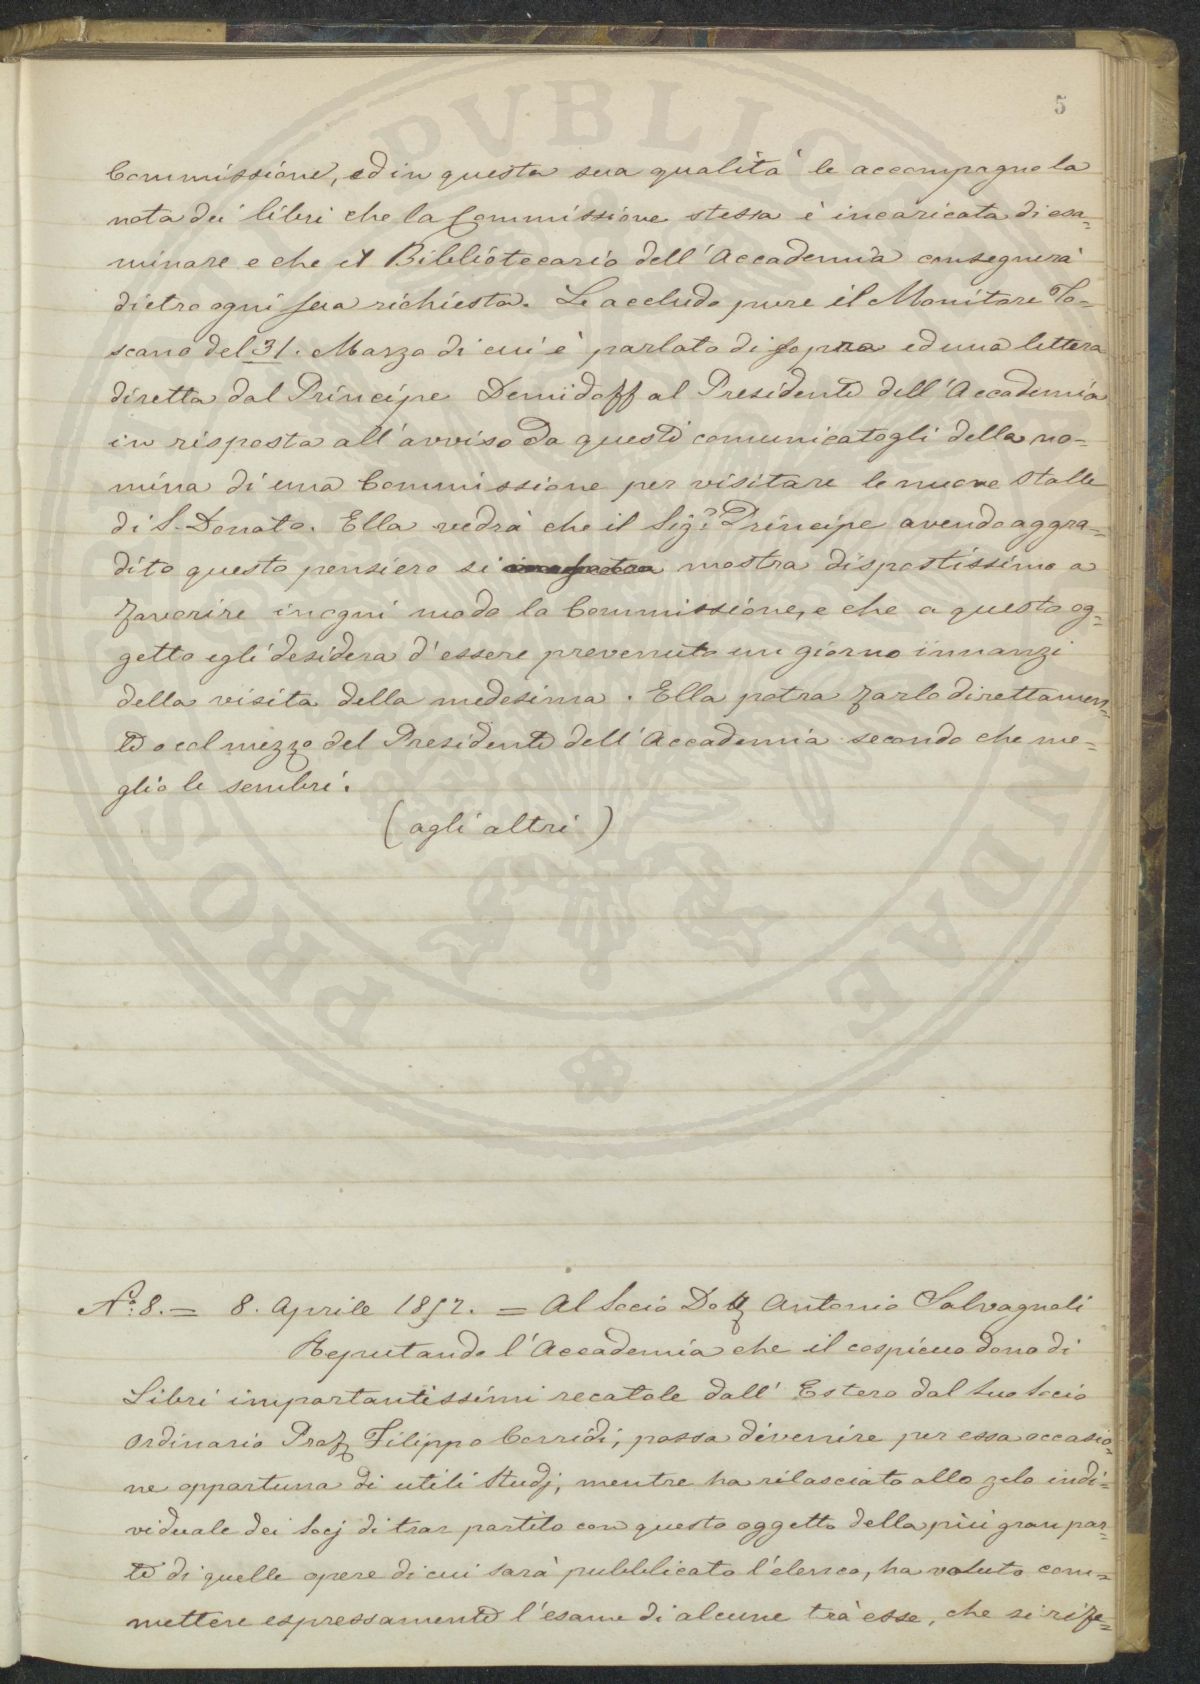 5
Commissione, ed in questa sua qualità le accompagno la
nota dei libri che la Commissione stessa è incaricata di esa=
minare e che il Bibliotecario dell'Accademia consegnerà
dietro ogni sua richiesta. Le accludo pure il Monitore To=
scano del 31. Marzo di cui è parlato di sopra ed una lettera
diretta dal Principe Demidoff al Presidente dell'Accademia
in risposta all'avviso da questi comunicatogli della no=
mina di una Commissione per visitare le nuove stalle
di S. Donato. Ella vedrà che il Sig.r Principe avendo aggra=
dito questo pensiero si mostra dispostissimo a
favorire in ogni modo la Commissione, e che a questo og=
getto egli desidera d'essere prevenuto un giorno innanzi
della visita della medesima. Ella potrà farlo direttamen=
te o col mezzo del Presidente dell'Accademia secondo che me=
glio le sembri.
(agli altri)
N.o 8. = 8. Aprile 1852. = Al Socio Dott Antonio Salvagnoli
Reputando l'Accademia che il cospicuo dono di
Libri importantissimi recatole dall'Estero dal suo Socio
Ordinario Prof Filippo Corridi, possa divenire per essa occasio=
ne opportuna di utili studj, mentre ha rilasciato allo zelo indi=
viduale dei Socj di trar partito con questo oggetto della più gran par=
te di quelle opere di cui sarà pubblicato l'elenco, ha voluto com=
mettere espressamente l'esame di alcune trà esse, che si rife=
PUBLICAE
PROSPERITATI